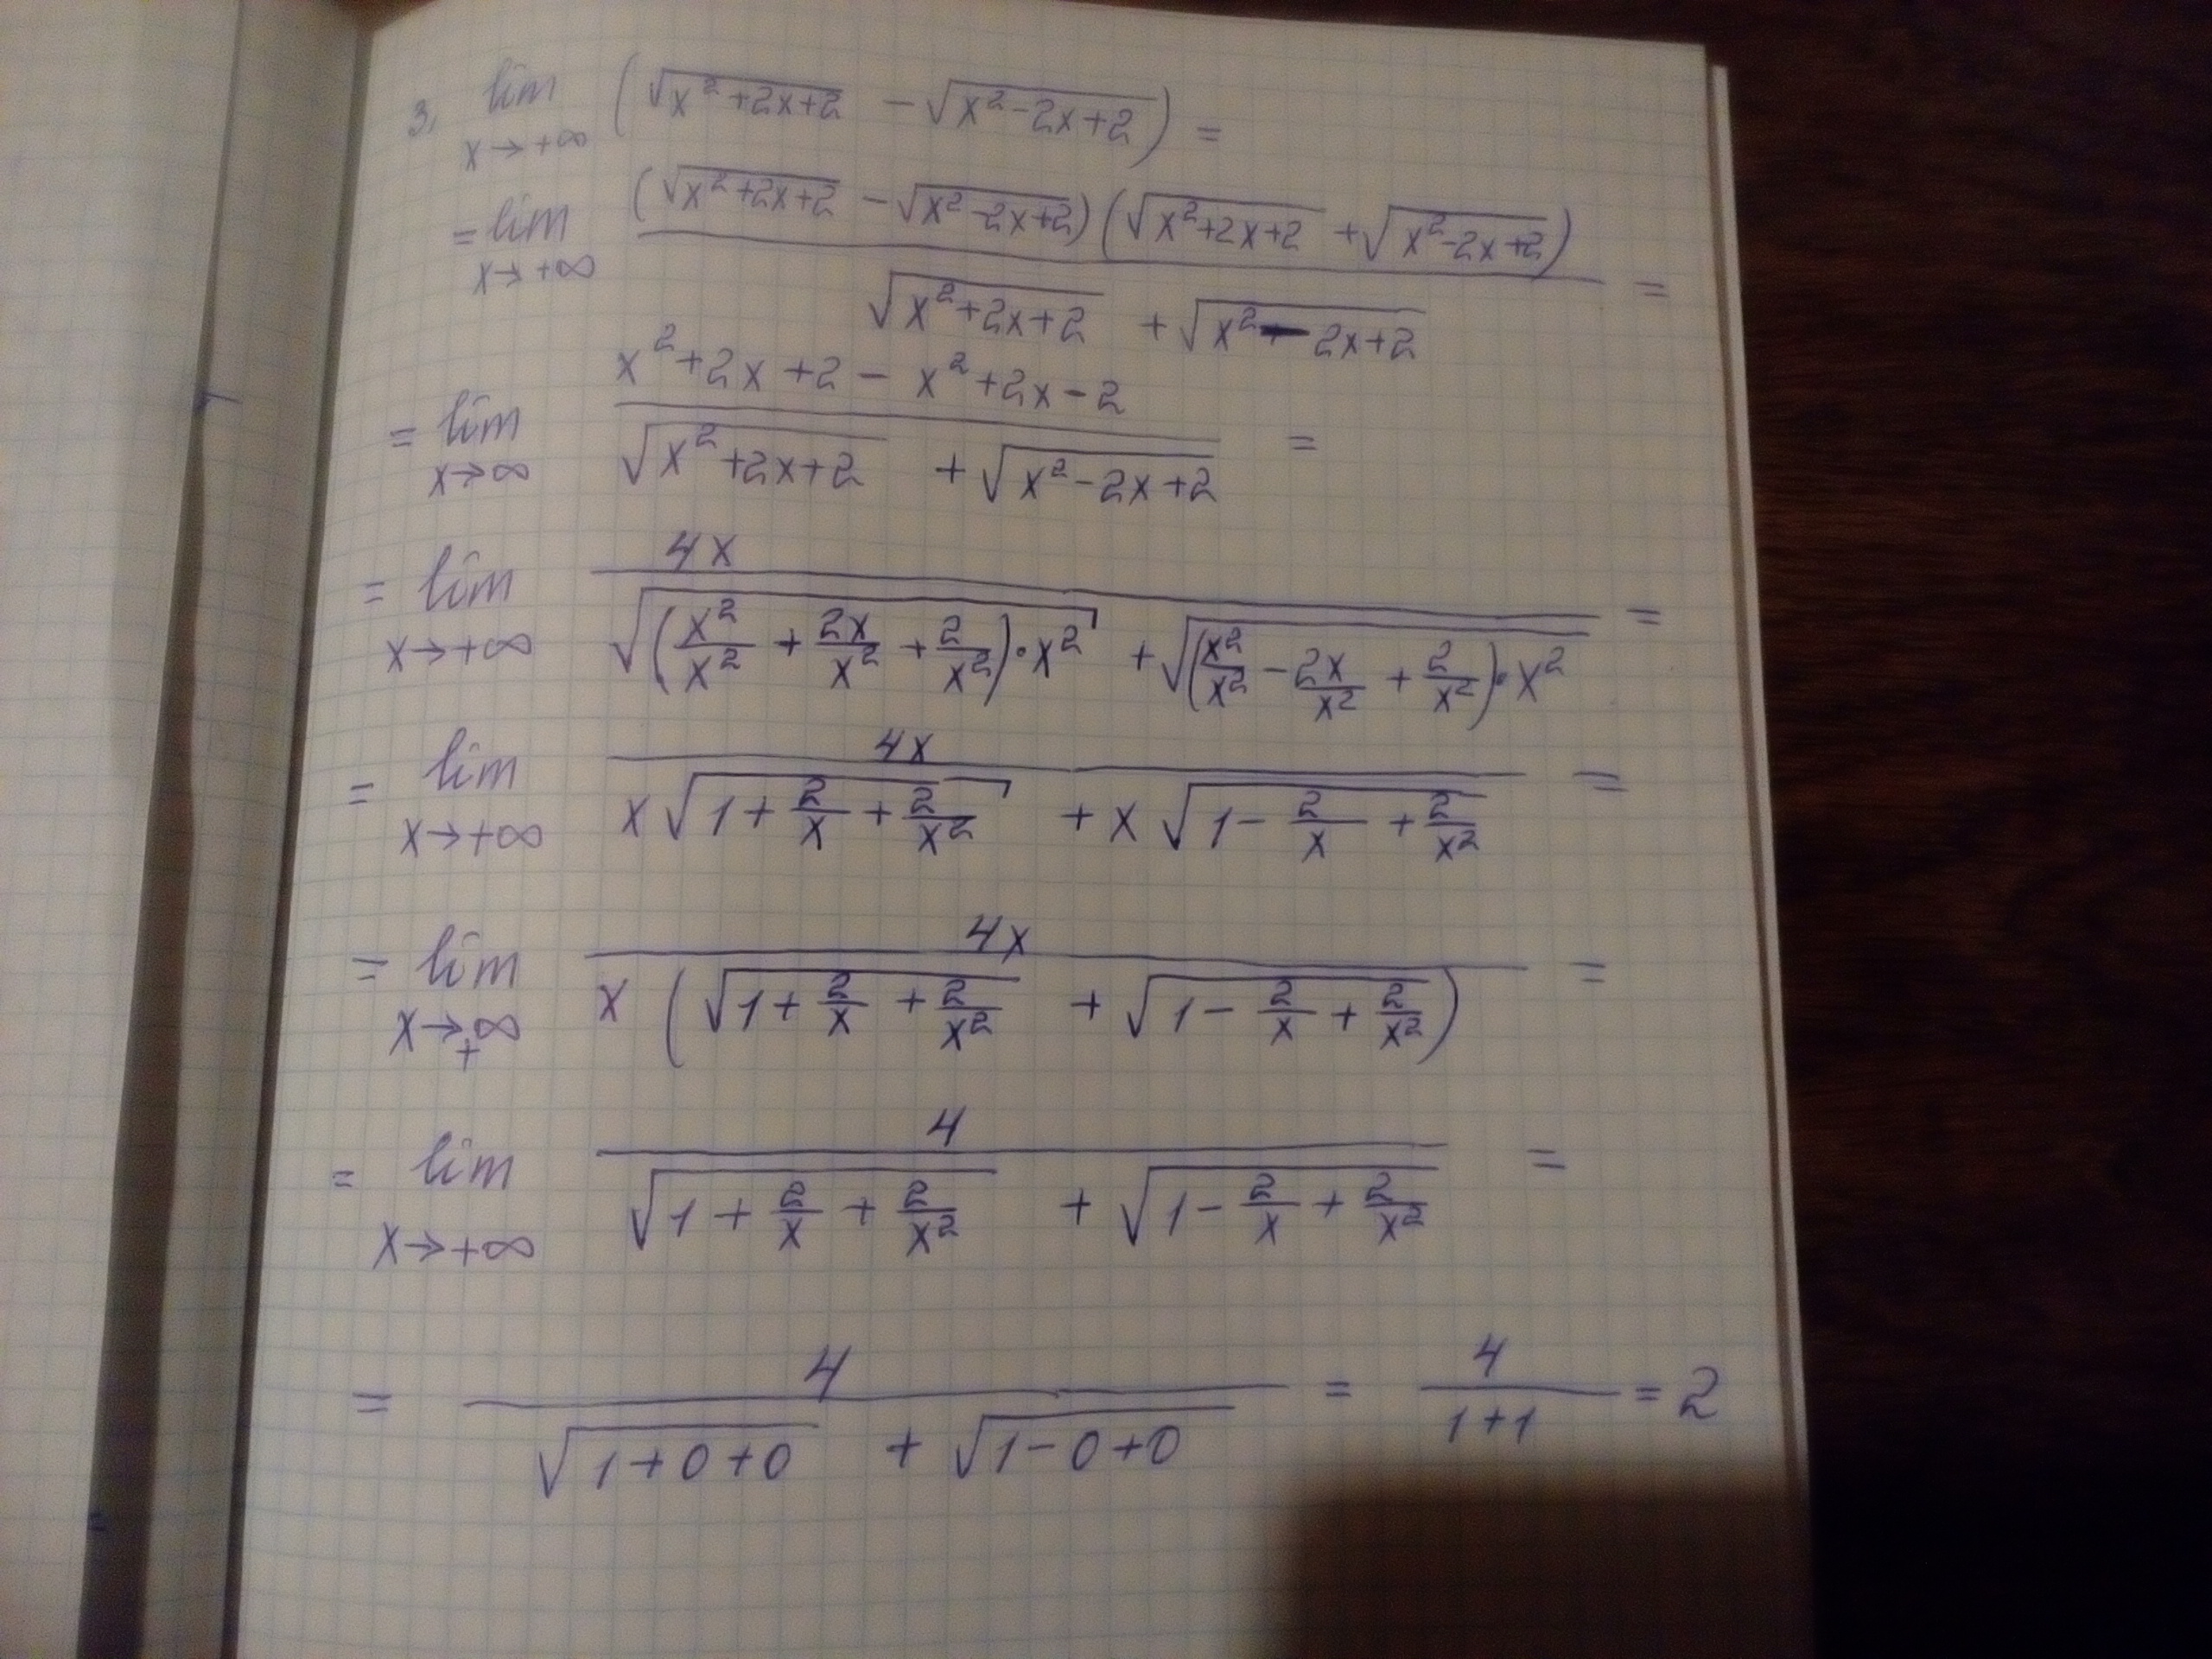 3. lim x→+∞ (√(x²+2x+2) − √(x²−2x+2)) =
= lim x→+∞ ((√(x²+2x+2) − √(x²−2x+2))(√(x²+2x+2) + √(x²−2x+2))) / (√(x²+2x+2) + √(x²−2x+2)) =
= lim x→∞ (x²+2x+2−x²+2x−2) / (√(x²+2x+2) + √(x²−2x+2)) =
= lim x→+∞ 4x / (√((x²/x² + 2x/x² + 2/x²)·x²) + √((x²/x² − 2x/x² + 2/x²)·x²)) =
= lim x→+∞ 4x / (x√(1 + 2/x + 2/x²) + x√(1 − 2/x + 2/x²)) =
= lim x→+∞ 4x / (x(√(1 + 2/x + 2/x²) + √(1 − 2/x + 2/x²))) =
= lim x→+∞ 4 / (√(1 + 2/x + 2/x²) + √(1 − 2/x + 2/x²)) =
= 4 / (√(1+0+0) + √(1−0+0)) = 4 / (1+1) = 2